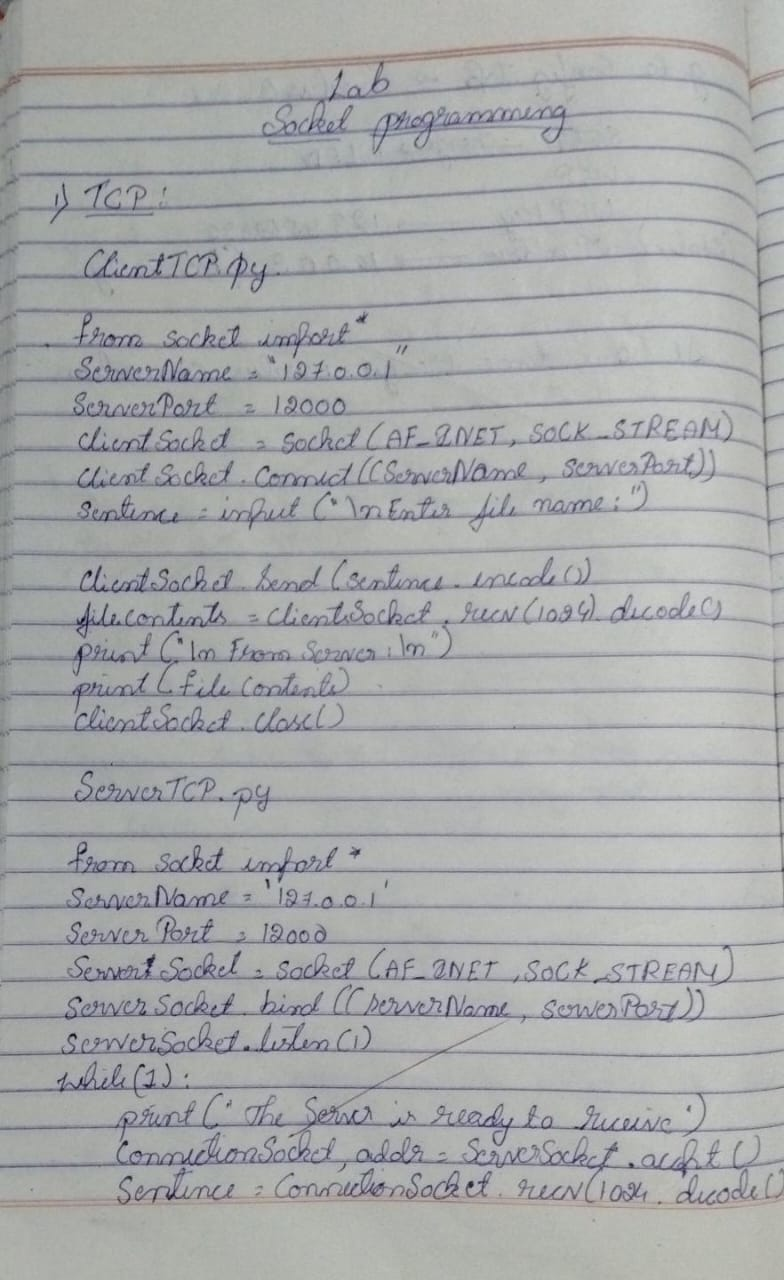 Lab
Socket programming
1) TCP:
ClientTCP.py.
from socket import*
ServerName = "127.0.0.1"
ServerPort = 12000
clientSocket = Socket (AF_INET, SOCK_STREAM)
Client Socket. Connect ((ServerName, serverPort))
Sentence = input ("\nEnter file name:")
ClientSocket. Send (sentence. encode())
filecontents = clientSocket. recv(1024). decode()
print ("\n From Server:\n")
print (file Contents)
clientSocket. close()
ServerTCP.py
from socket import *
ServerName = '127.0.0.1'
Server Port = 12000
Server Socket = socket (AF_INET, SOCK_STREAM)
Server Socket. bind ((serverName, serverPort))
serverSocket. listen (1)
while (1):
print (" The Server is ready to receive")
ConnectionSocket, addr = ServerSocket. accept ()
Sentence = ConnectionSocket. recv(1024. decode()